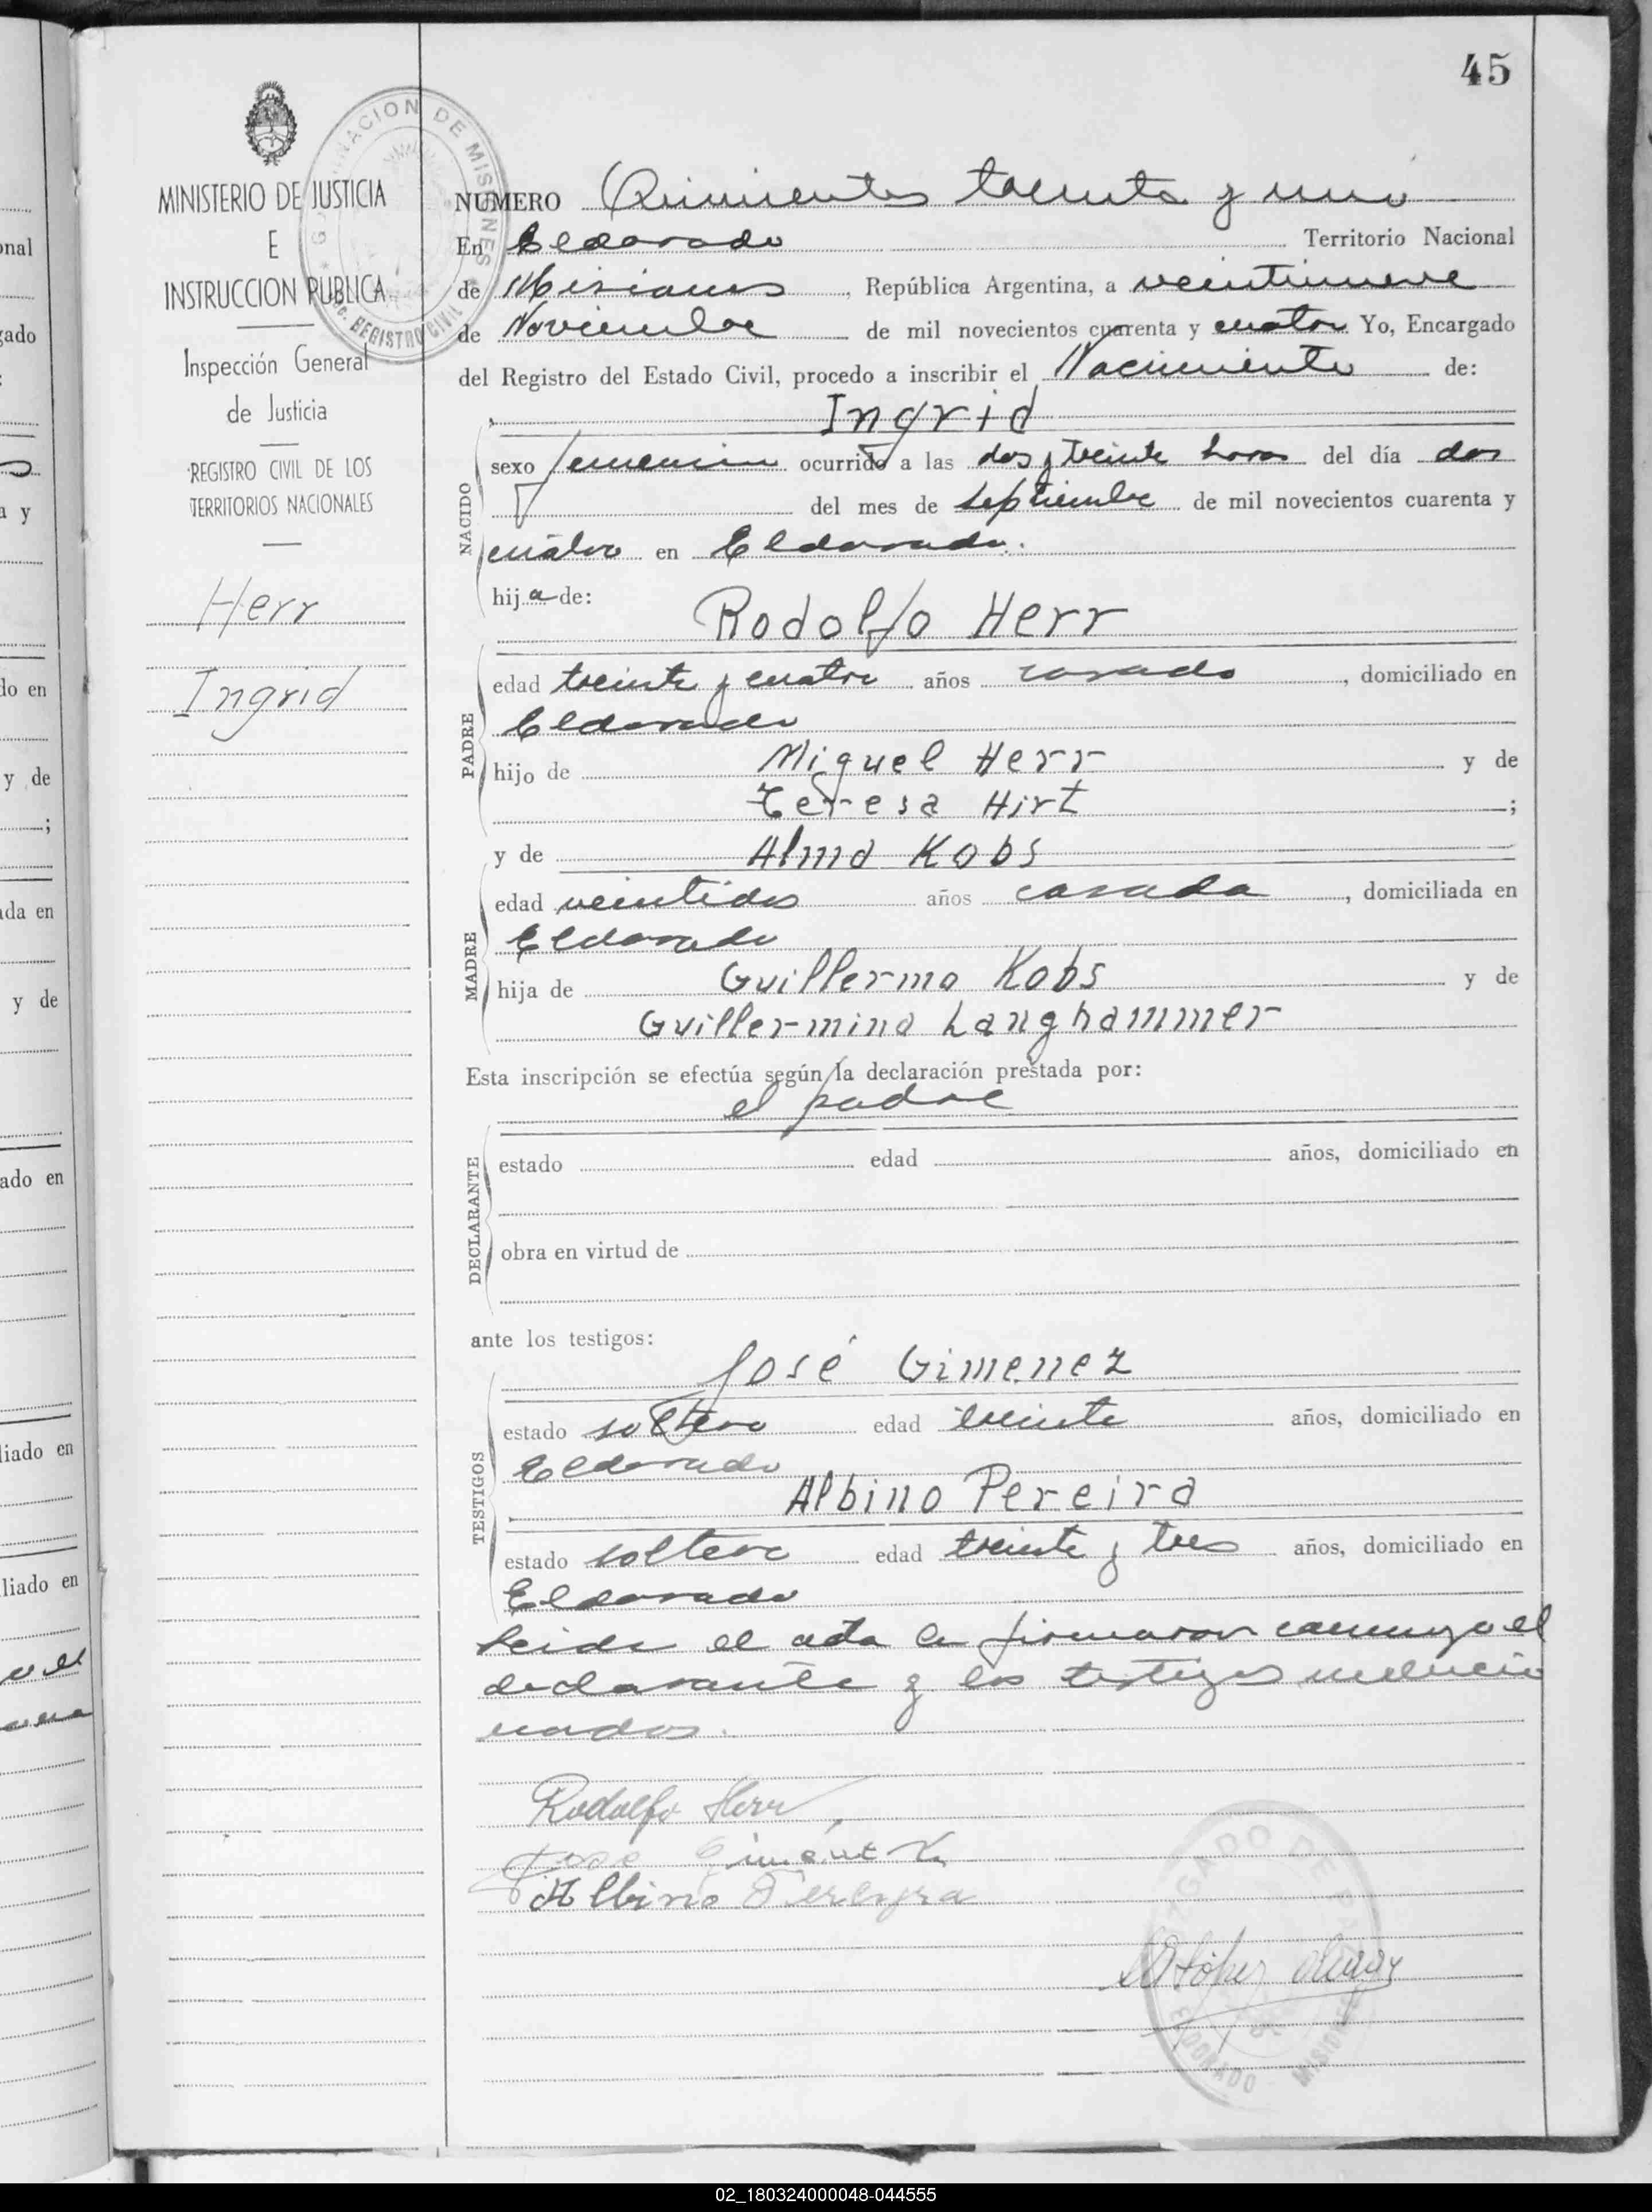 45
GOBERNACION DE MISIONES
REGISTRO CIVIL
MINISTERIO DE JUSTICIA
E
INSTRUCCION PUBLICA
Inspección General
de Justicia
REGISTRO CIVIL DE LOS
TERRITORIOS NACIONALES
Herr
Ingrid
NUMERO Quinientos treinta y uno
En Eldorado Territorio Nacional
de Misiones, República Argentina, a veintinueve
de Noviembre de mil novecientos cuarenta y cuatro Yo, Encargado
del Registro del Estado Civil, procedo a inscribir el Nacimiento de:
Ingrid
NACIDO
sexo femenino ocurrido a las dos y treinta horas del día dos
del mes de septiembre de mil novecientos cuarenta y
cuatro en Eldorado.
hija de:
Rodolfo Herr
PADRE
edad treinta y cuatro años casado, domiciliado en
Eldorado
hijo de Miguel Herr y de
Teresa Hirt;
y de Alma Kobs
MADRE
edad veintidos años casada, domiciliada en
Eldorado
hija de Guillermo Kobs y de
Guillermina Langhammer
Esta inscripción se efectúa según la declaración prestada por:
el padre
DECLARANTE
estado edad años, domiciliado en
obra en virtud de
ante los testigos:
José Gimenez
TESTIGOS
estado soltero edad treinta años, domiciliado en
Eldorado
Albino Pereira
estado soltero edad treinta y tres años, domiciliado en
Eldorado
Leida el acta la firmaron conmigo el
declarante y los testigos mencio
nados.
Rodolfo Herr
Jose Gimenez
Albino Pereyra
López
ELDORADO MISIONES
02_180324000048-044555